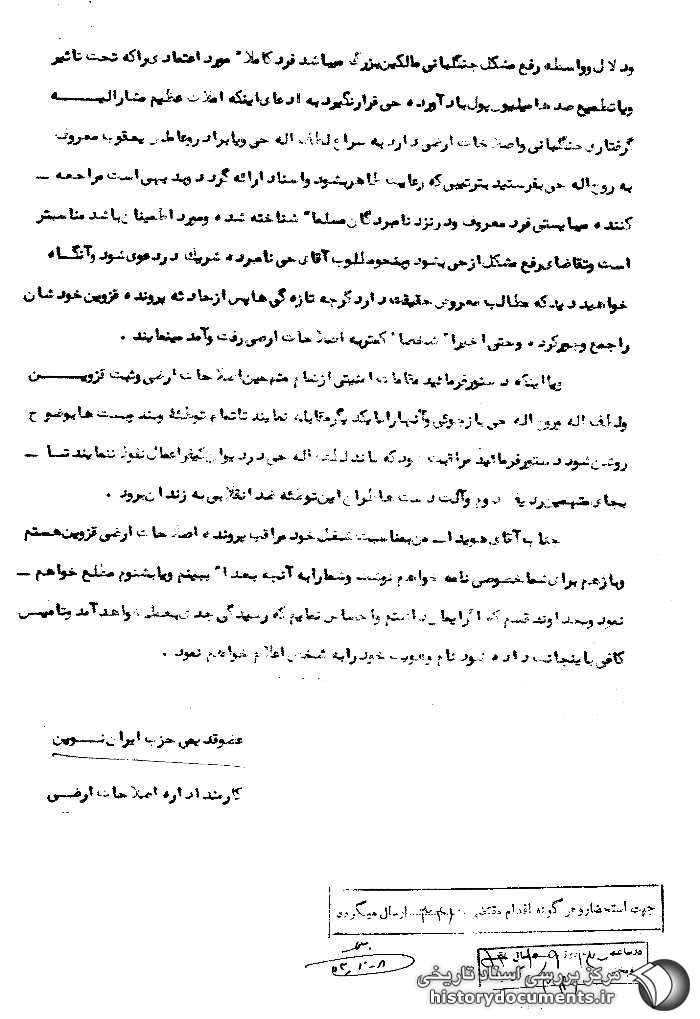 ودلال وواسطه رفع مشکل جنگلبانی مالکین بزرگ میباشد فرد کاملا" مورد اعتمادی راکه تحت تاثیر
ویا تطمیع صدها میلیون پول باد آورده حی قرار نگیرد به ادعای اینکه املاک عظیم مشارالیــه
گرفتاری جنگلبانی واصلاحات ارضی دارد به سراغ لطف اله حی ویا برادر وعاملش یعقوب معروف
به روح اله حی بفرستید بترتیبی که رعایت ظاهر بشود واسناد ارائه گردد وبدیهی است مراجعه ـ
کننده میبایستی فرد معروف ودر نزد نامبردگان مسلما" شناخته شده ومورد اطمینان باشد مناسبتر
است وتقاضای رفع مشکل از حی بشود وبنحو مطلوب آقای حی نامبرده شریک در دعوی شود وآنگاه
خواهید دید که مطالب معروض حقیقت دارد گرچه تازه گی ها پس از حادثه پرونده قزوین خودشان
را جمع وجور کرده وحتی اخیرا" شخصا" کمتر به اصلاحات ارضی رفت وآمد مینمایند .
ویا اینکه دستور فرمائید مقامات امنیتی از تمام متهمین اصلاحات ارضی وثبت قزویــن
ولطف اله وروح اله حی بازجوئی وآنها را با یکدیگر مقابله نمایند تا تمام توطئه وبند وبست ها بوضوح
روشن شود دستور فرمائید مراقبت شود که مانند لطف اله حی در دیوان کیفر اعمال نفوذ ننمایند تا ـ
بجای متهمین ردیف دوم وآلت دست ها طراحان این توطئه ضد انقلابی به زندان برود .
جناب آقای هویدا ـ من بمناسبت شغل خود مراقب پرونده اصلاحات ارضی قزوین هستم
وباز هم برای شما خصوصی نامه خواهم نوشت وشما را به آنچه بعدا" ببینم ویا بشنوم مطلع خواهم ـ
نمود وبخداوند قسم که اگر ایمان داشتم واحساس نمایم که رسیدگی جدی بعمل خواهد آمد وتامین
کافی باینجانب داده شود نام وهویت خود را به شخص اعلام خواهم نمود .
عضو قدیمی حزب ایران نــوین
کارمند اداره اصلاحات ارضــی
جهت استحضار و هر گونه اقدام مقتضی ارسال میگردد
مرکز بررسی اسناد تاریخی
historydocuments.ir